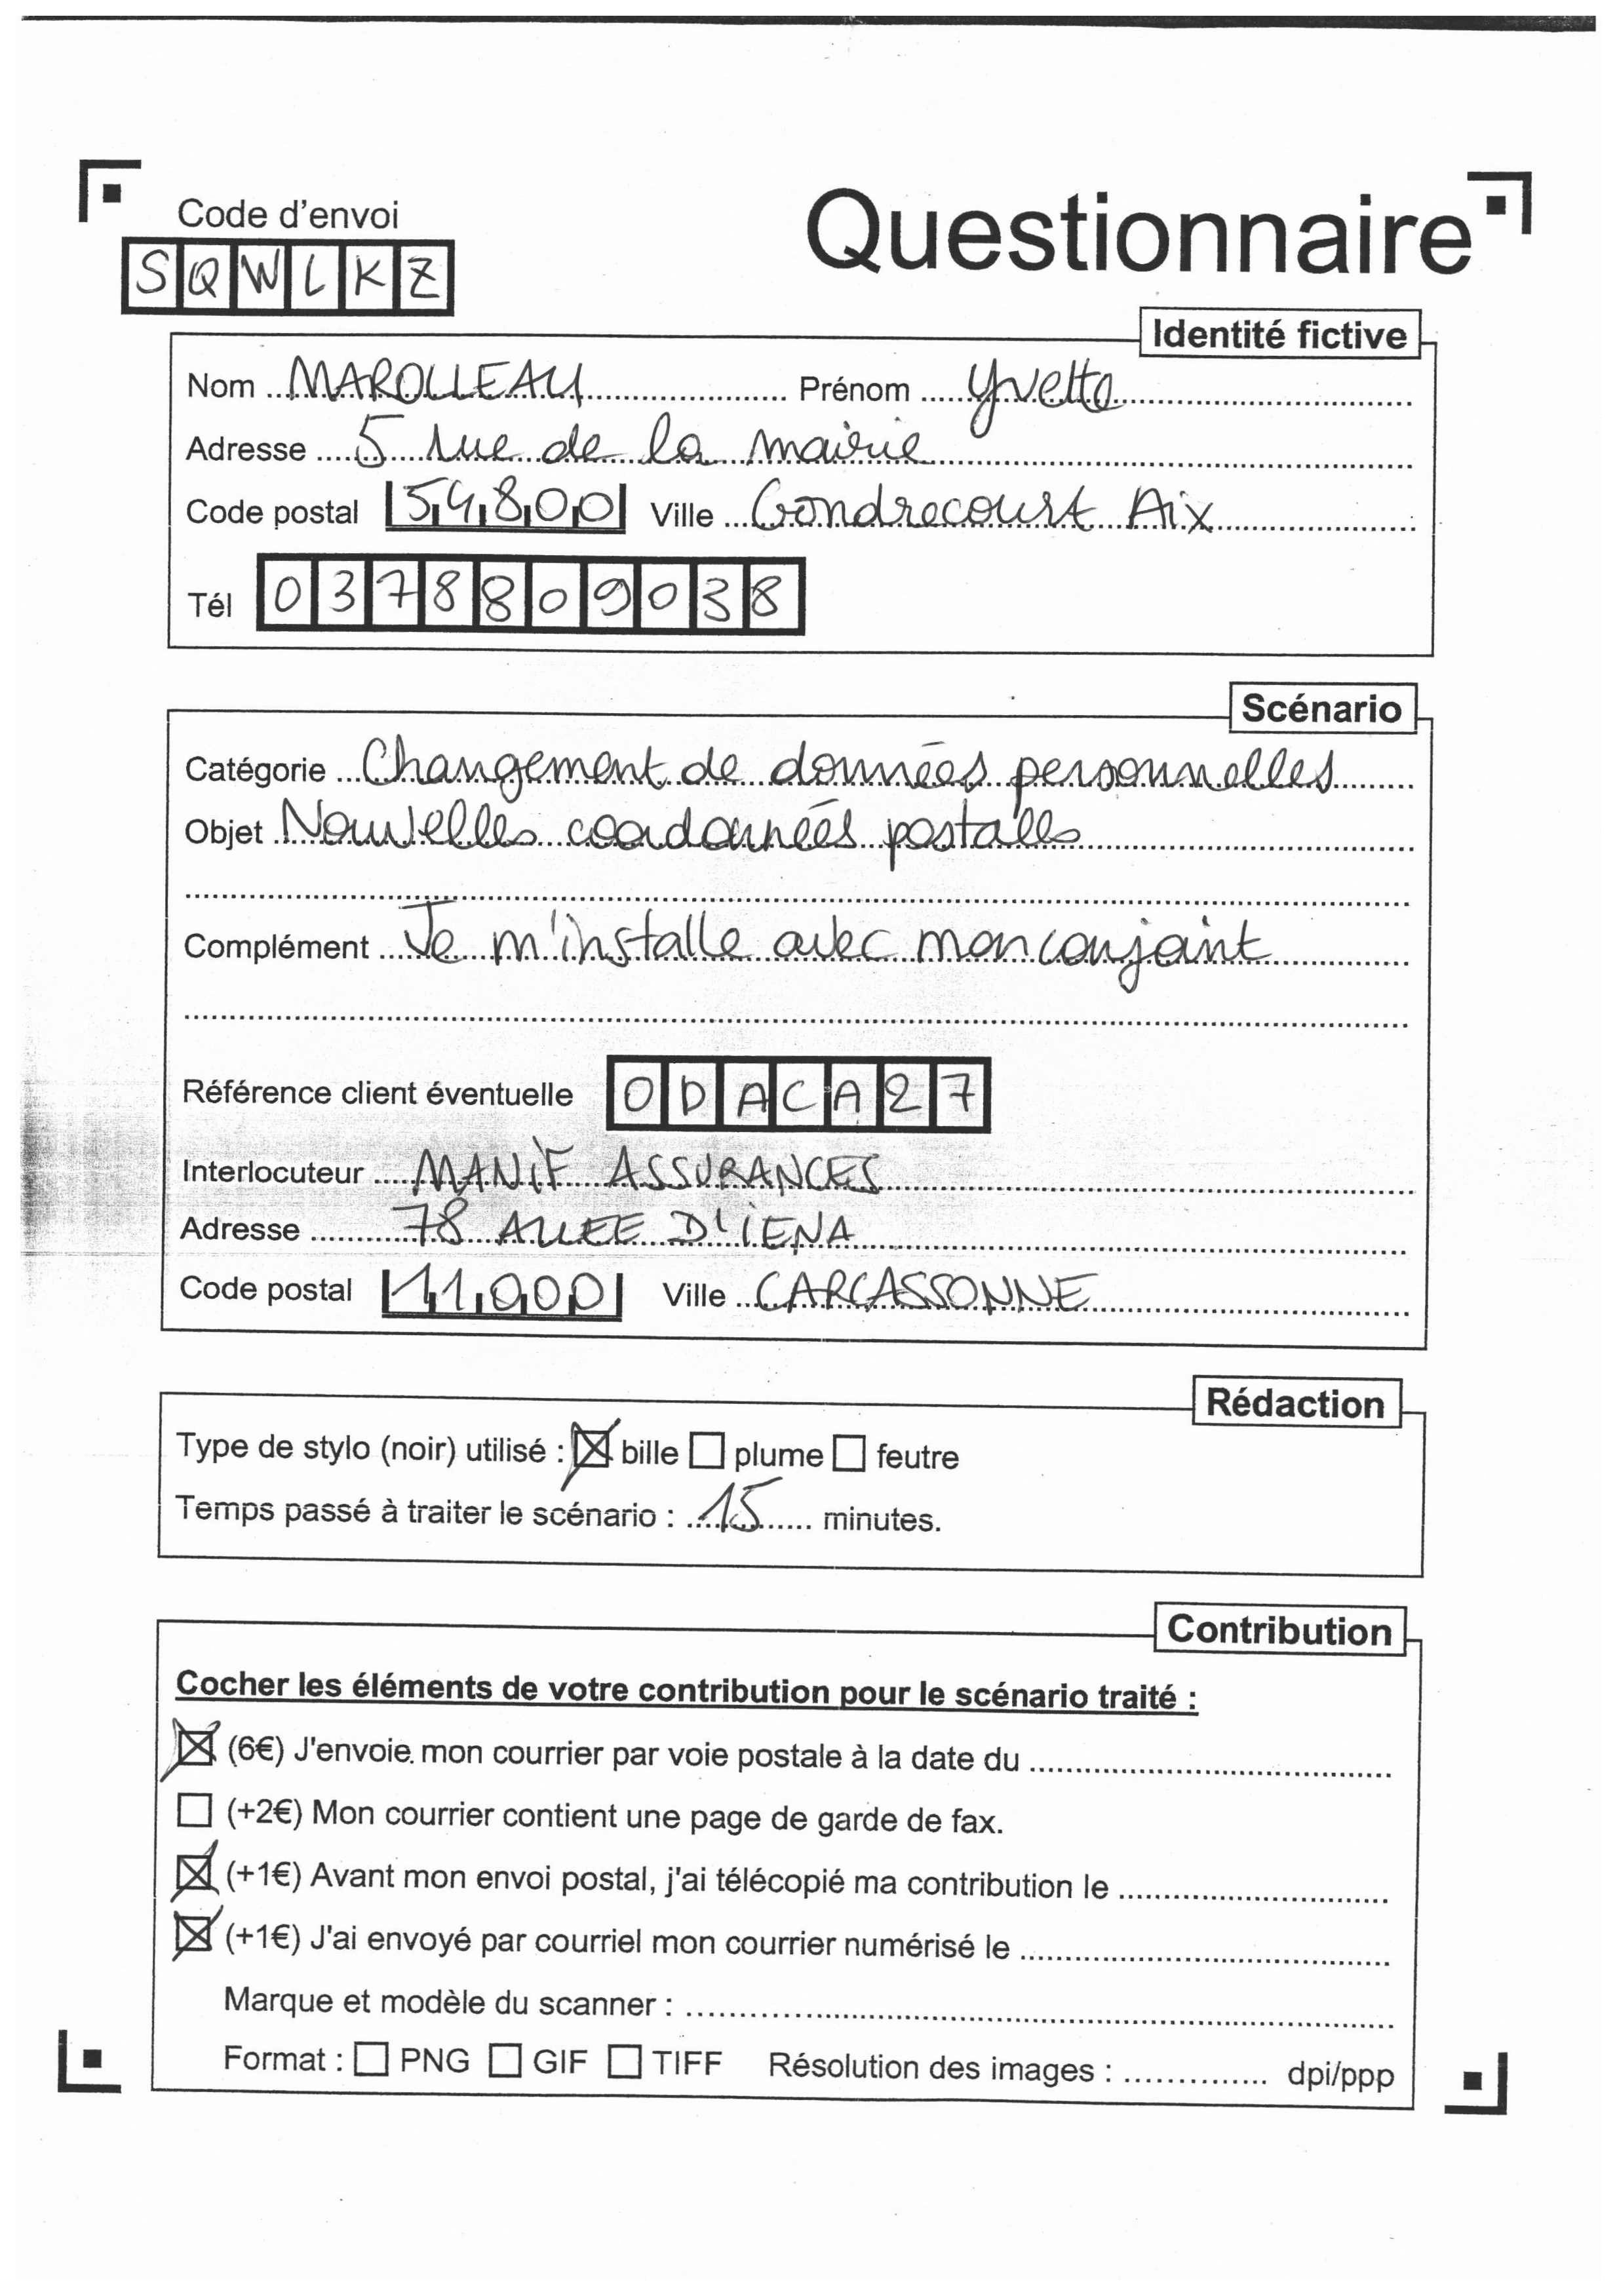 Code d'envoi
Questionnaire
SQWLKZ
Identité fictive
Nom MAROLLEAU Prénom Yvette
Adresse 5 rue de la mairie
Code postal 54800 Ville Gondrecourt Aix
Tél 0378809038
Scénario
Catégorie Changement de données personnelles
Objet Nouvelles coordonnées postales
Complément Je m'installe avec mon conjoint
Référence client éventuelle ODACA27
Interlocuteur MANIF ASSURANCES
Adresse 78 ALLEE D'IENA
Code postal 11000 Ville CARCASSONNE
Rédaction
Type de stylo (noir) utilisé : ☒ bille ☐ plume ☐ feutre
Temps passé à traiter le scénario : 15 minutes.
Contribution
Cocher les éléments de votre contribution pour le scénario traité :
☒ (6€) J'envoie mon courrier par voie postale à la date du
☐ (+2€) Mon courrier contient une page de garde de fax.
☒ (+1€) Avant mon envoi postal, j'ai télécopié ma contribution le
☒ (+1€) J'ai envoyé par courriel mon courrier numérisé le
Marque et modèle du scanner :
Format : ☐ PNG ☐ GIF ☐ TIFF Résolution des images : dpi/ppp